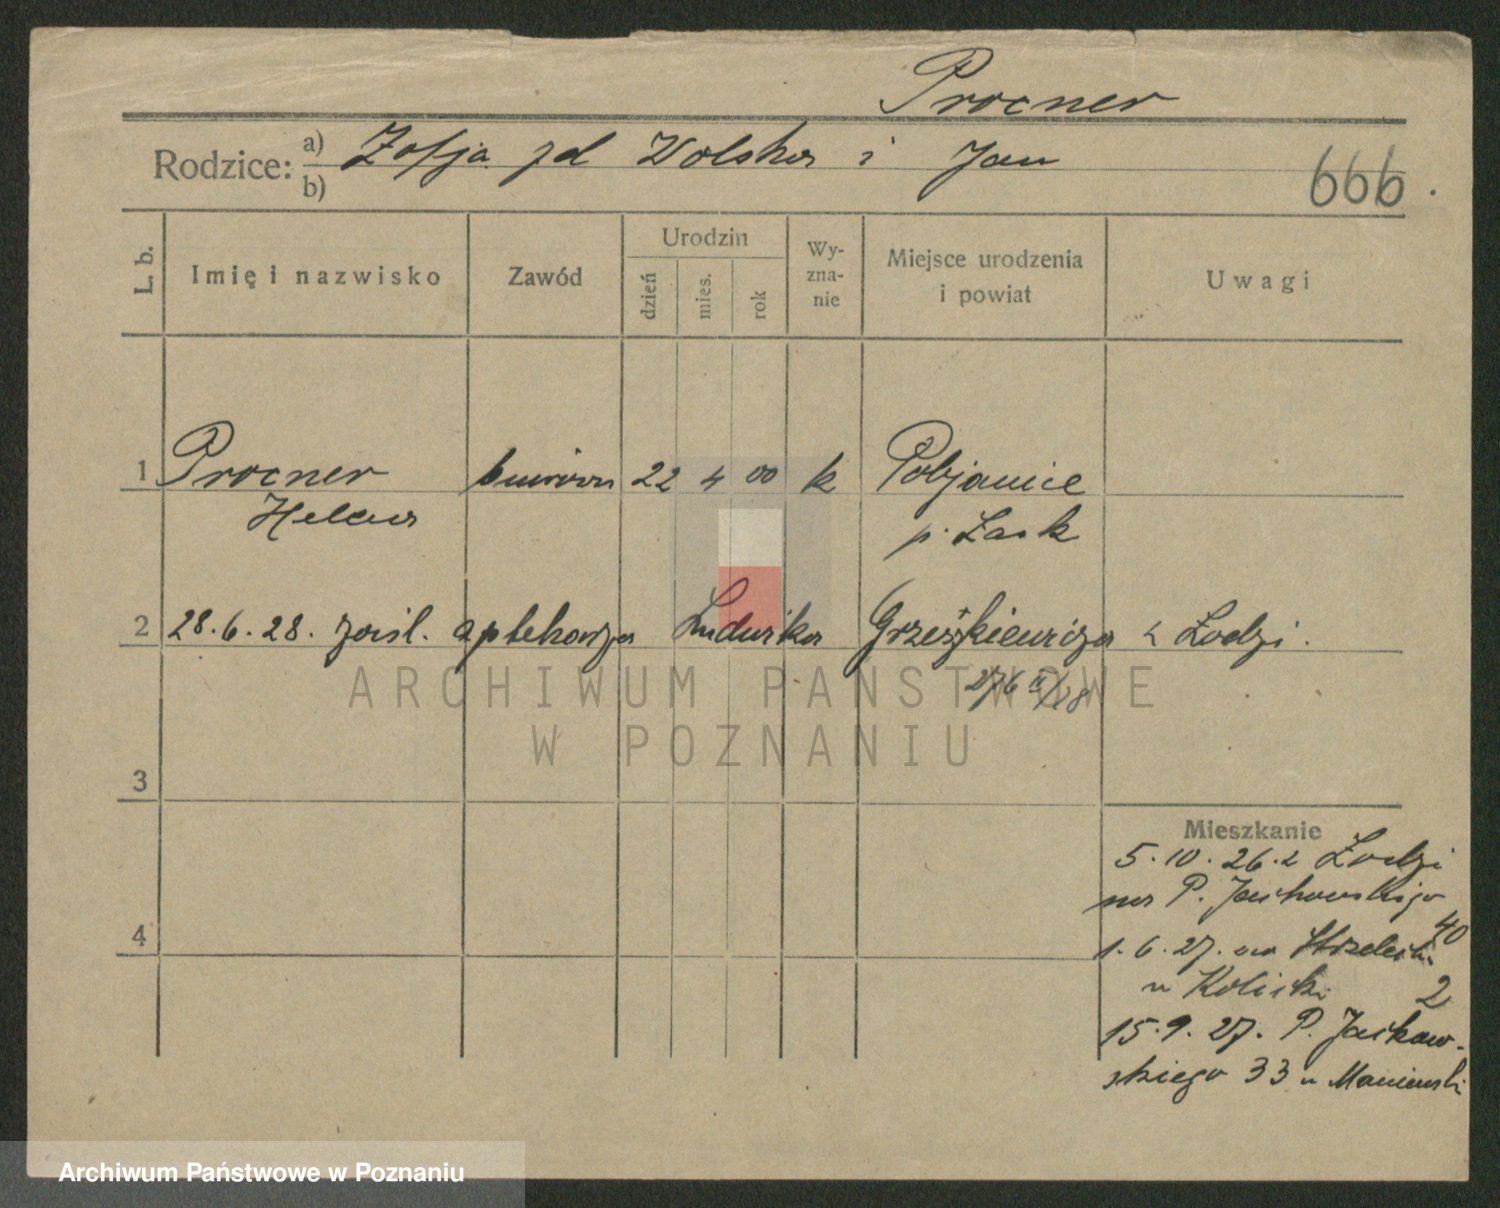 Procner
Rodzice: a) Zofja zd Wolska i Jan
b)
666.
L. b. Imię i nazwisko Zawód Urodzin dzień mies. rok Wy-zna-nie Miejsce urodzenia i powiat Uwagi
1 Procner 22 4 00 k Pabjanice
Helena p. Łask
2 28.6.28. zaśl. aptekarza Ludwika Grześkiewicza z Łodzi.
276 II/28
ARCHIWUM PAŃSTWOWE
W POZNANIU
3
Mieszkanie
5.10.26. z Łodzi
na P. Jackowskiego
40
4
1.6.27. na Strzelecką
u Kolicki 2
15.9.27. P. Jackow-
skiego 33 u Maniewski
Archiwum Państwowe w Poznaniu